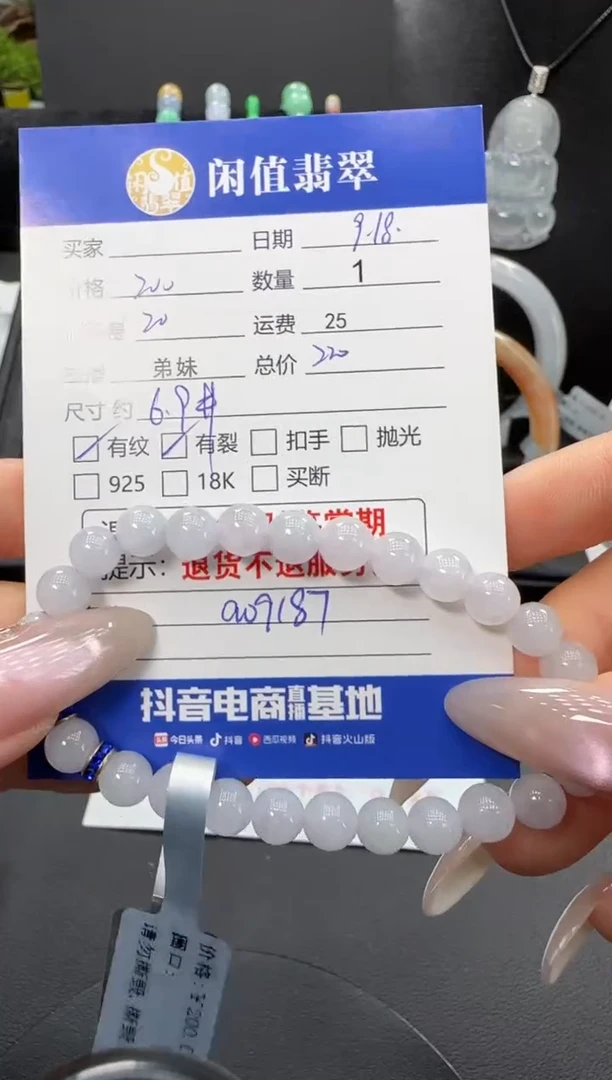 闲值翡翠
买家 日期 9.18.
价格 200 数量 1
20 运费 25
弟妹 总价 220
尺寸 约 6.9#
有纹 有裂 扣手 抛光
925 18K 买断
提示: 退货不退服务
a09187
抖音电商直播基地
今日头条 抖音 西瓜视频 抖音火山版
价格: ¥200.0
圈口:
请勿撕毁,